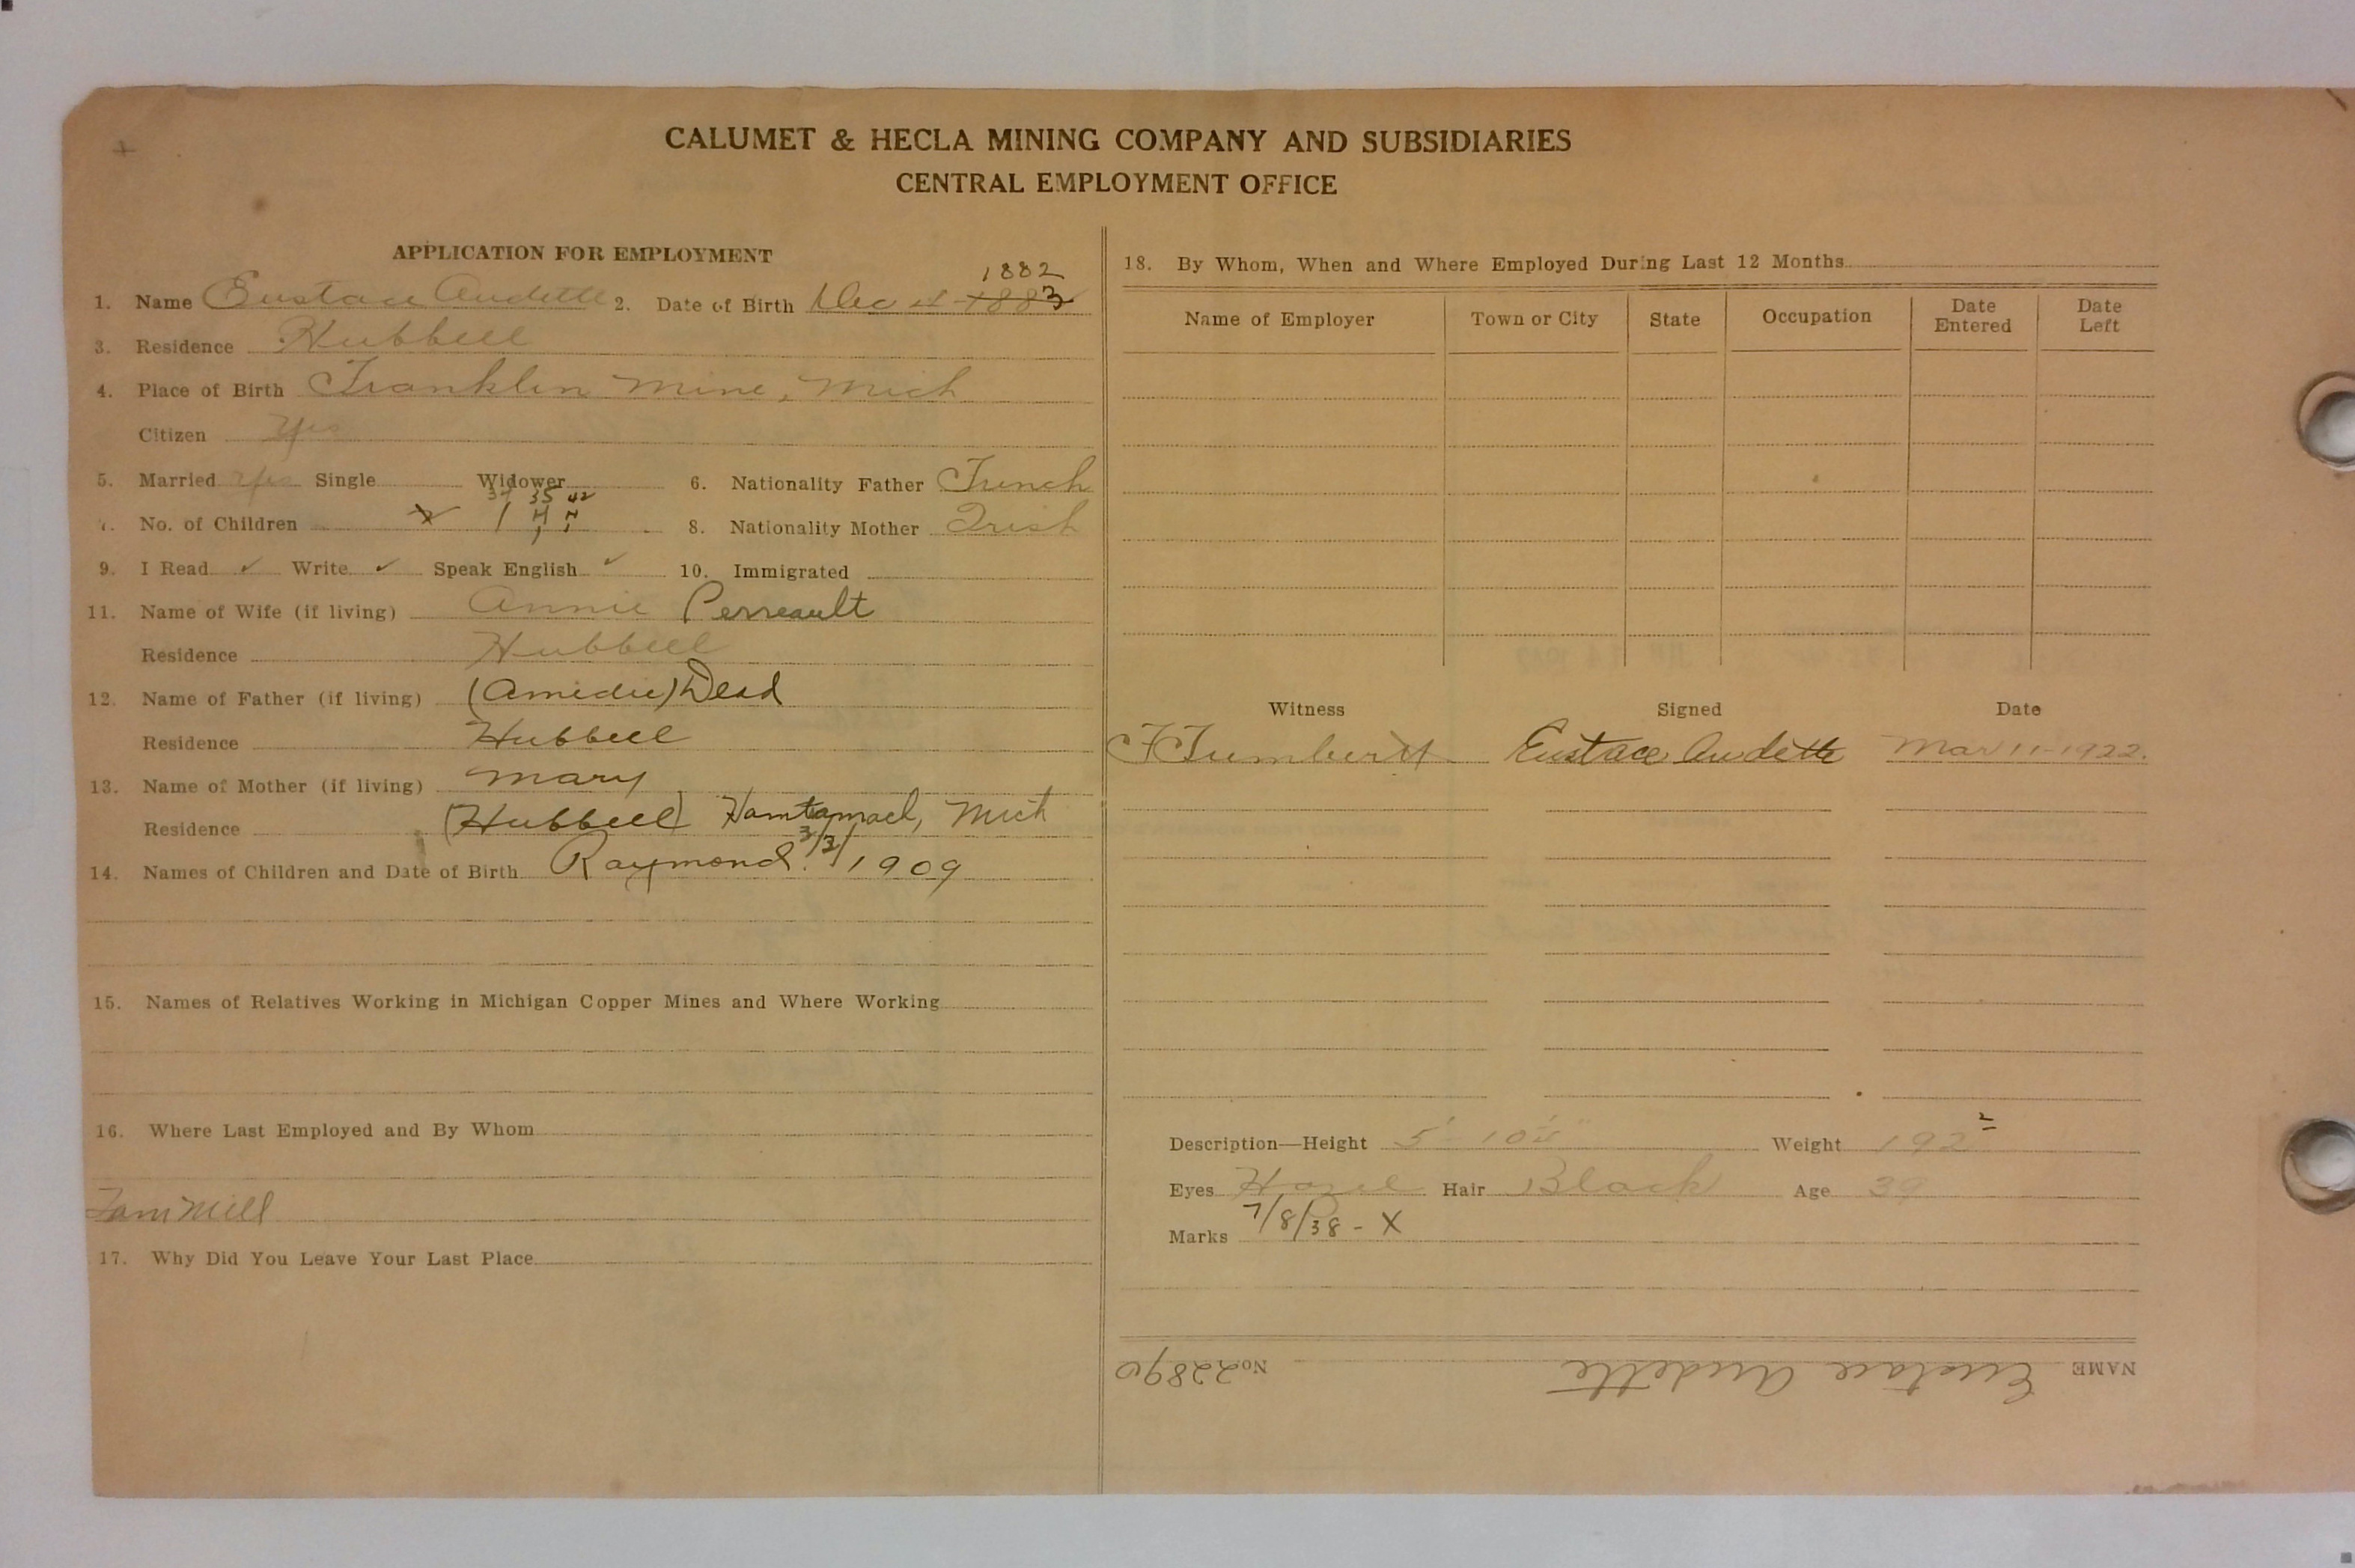 CALUMET & HECLA MINING COMPANY AND SUBSIDIARIES
CENTRAL EMPLOYMENT OFFICE
APPLICATION FOR EMPLOYMENT
1882
1. Name Eustace Audette 2. Date of Birth Dec 1883
3. Residence Hubbell
4. Place of Birth Franklin Mine, Mich
Citizen Yes
5. Married Yes Single Widower 6. Nationality Father French
35 42
7. No. of Children 1 8. Nationality Mother Irish
9. I Read ✓ Write ✓ Speak English ✓ 10. Immigrated
11. Name of Wife (if living) Annie Perreault
Residence Hubbell
12. Name of Father (if living) (Amedie) Dead
Residence Hubbell
13. Name of Mother (if living) Mary
Residence (Hubbell) Hamtamack, Mich
14. Names of Children and Date of Birth Raymond. 3/3/1909
15. Names of Relatives Working in Michigan Copper Mines and Where Working
16. Where Last Employed and By Whom
Tam Mill
17. Why Did You Leave Your Last Place
18. By Whom, When and Where Employed During Last 12 Months
Name of Employer Town or City State Occupation Date Entered Date Left
Witness Signed Date
Eustace Audette Mar 11-1922.
Description—Height 5' 10 Weight 192
Eyes Hazel Hair Black Age 39
Marks 7/8/38 - X
NAME Eustace Audette No. 22890